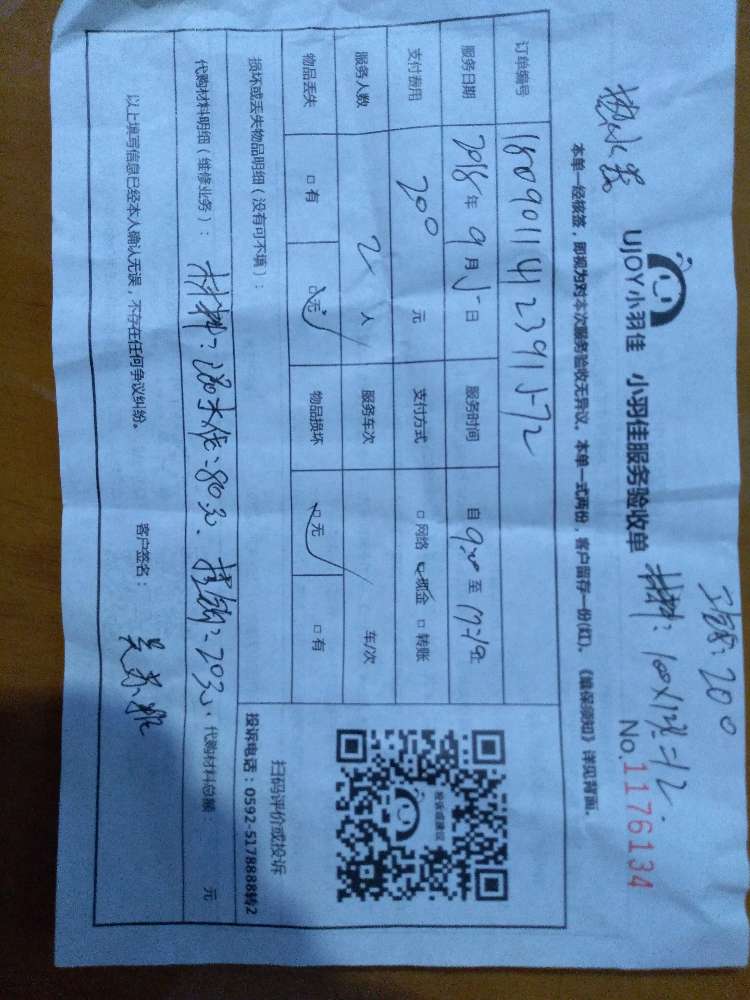 工钱：200
热水器
材料：100×12%=12.
UJOY小羽佳 小羽佳服务验收单
No.1176134
本单一经核签，即视为对本次服务验收无异议，本单一式两份，客户留存一份(红)。《维保须知》详见背面。
订单编号 1809011412391572
服务日期 2018年9月5日 服务时间 自9:00至17:19止
支付费用 200元 支付方式 □网络 ☑现金 □转账
服务人数 2人 服务车次 车/次
物品丢失 □有 ☑无 物品损坏 ☑无 □有
损坏或丢失物品明细（没有可不填）：
代购材料明细（维修业务）：材料：80元、20元. 代购材料总额： 元
以上填写信息已经本人确认无误，不存在任何争议纠纷。 客户签名：
投诉或建议
扫码评价或投诉
投诉电话：0592-5178888转2